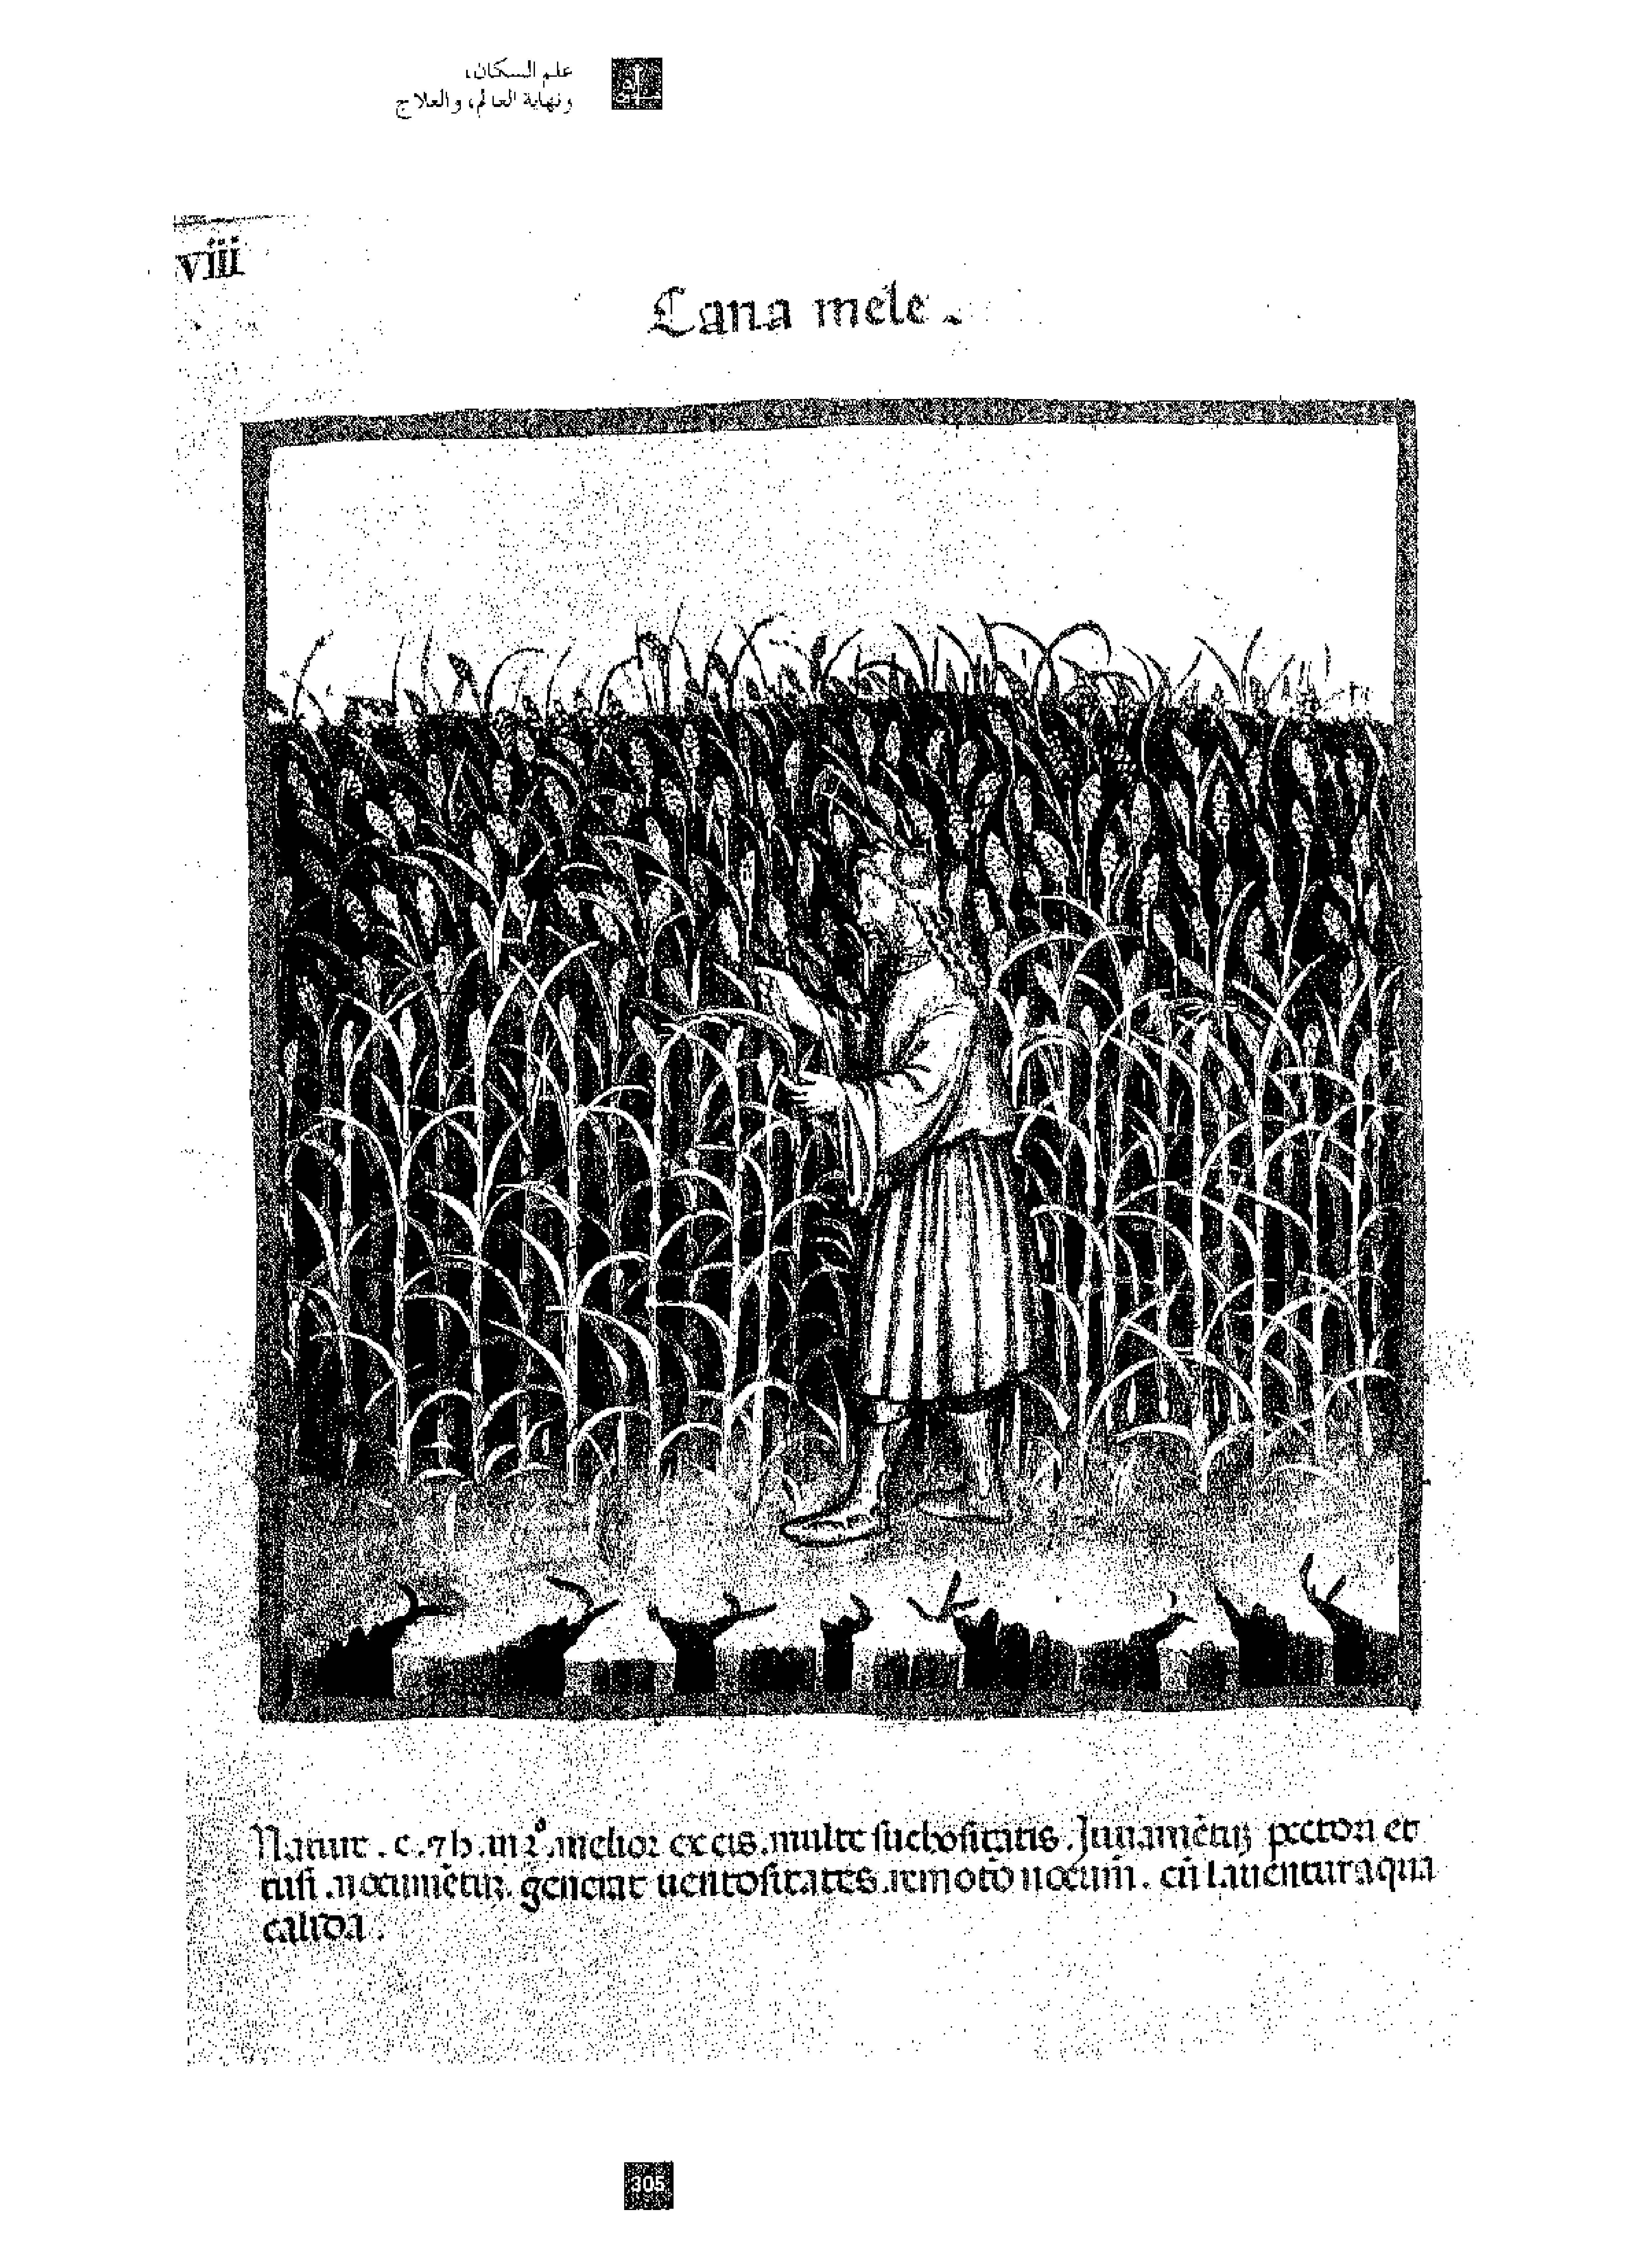 علم السكان،
ونهاية العالم، والعلاج
viii
Cana mele.
Natur̄. c. ⁊ h. in 2°. melior ex eis. multe suchositatis. Juuamētuȝ pectori et
tusi. nocumētuȝ. generat uentositates. remotō nocum̄. cū lauentur aqua
calida.
305